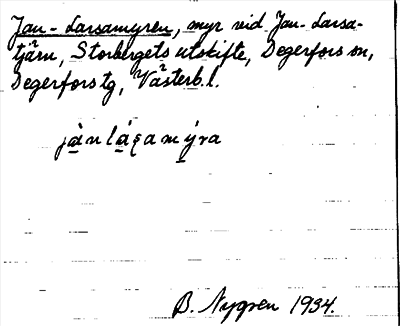 Jan-Larsamyren, myr vid Jan-Larsa-
tjärn, Storbergets utskifte, Degerfors sn,
Degerfors tg, Västerb. l.
jànláʂamýra
B. Nygren 1934.